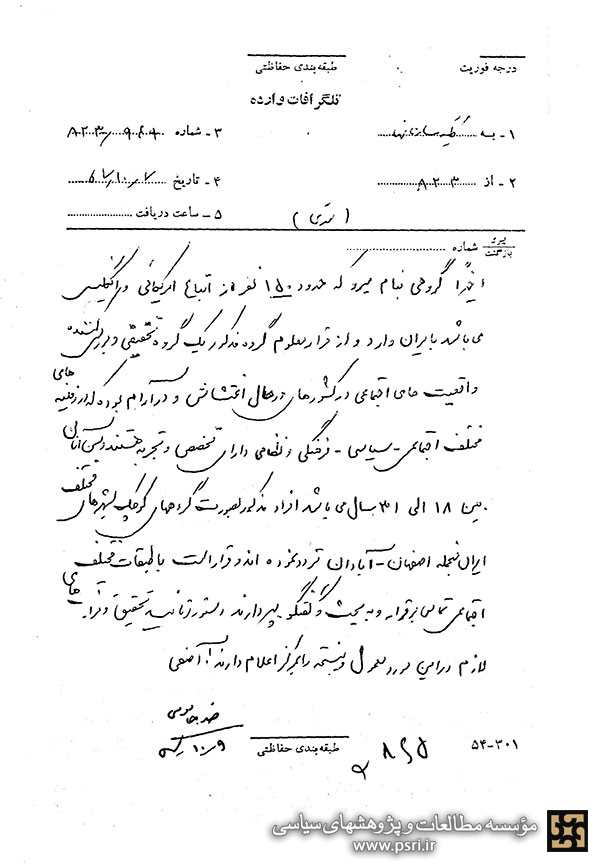 درجه فوریت
طبقه‌بندی حفاظتی
تلگرافات وارده
۱- به کلیه
۳- شماره ۸۲۳/۹۶۹۰
۲- از ۸۲۳
۴- تاریخ ۵۷/۱۰/۷
۵- ساعت دریافت
پیرو
بازگشت شماره
اخیراً گروهی بنام میرو که حدود ۱۵۰ نفر از اتباع امریکائی و انگلیسی
می باشد بایران وارد و از قرار معلوم گروه مذکور یک گروه تحقیقی و بررسی کننده
واقعیت های اجتماعی در کشورهای در حال اغتشاش و نا آرام بوده که در زمینه های
مختلف اجتماعی - سیاسی - فرهنگی و نظامی دارای تخصص و تجربه هستند و سن آنان
بین ۱۸ الی ۳۱ سال می باشد افراد مذکور بصورت گروههای کوچک بشهرهای مختلف
ایران منجمله اصفهان - آبادان تردد نموده اند و قرار است با طبقات مختلف
اجتماعی تماس برقرار و به بحث و گفتگو بپردازند دستور فرمائید تحقیق و مراقبت های
لازم در این مورد معمول و نتیجه را بمرکز اعلام دارند. آصفی
ضد جاسوسی
۱۰/۹
طبقه‌بندی حفاظتی
۵۴-۳۰۱
مؤسسه مطالعات و پژوهشهای سیاسی
www.psri.ir